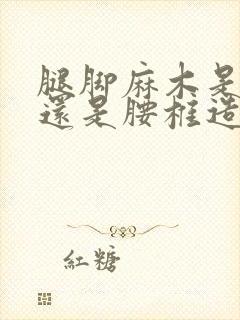 腿脚麻木是
還是腰椎造
紅糖